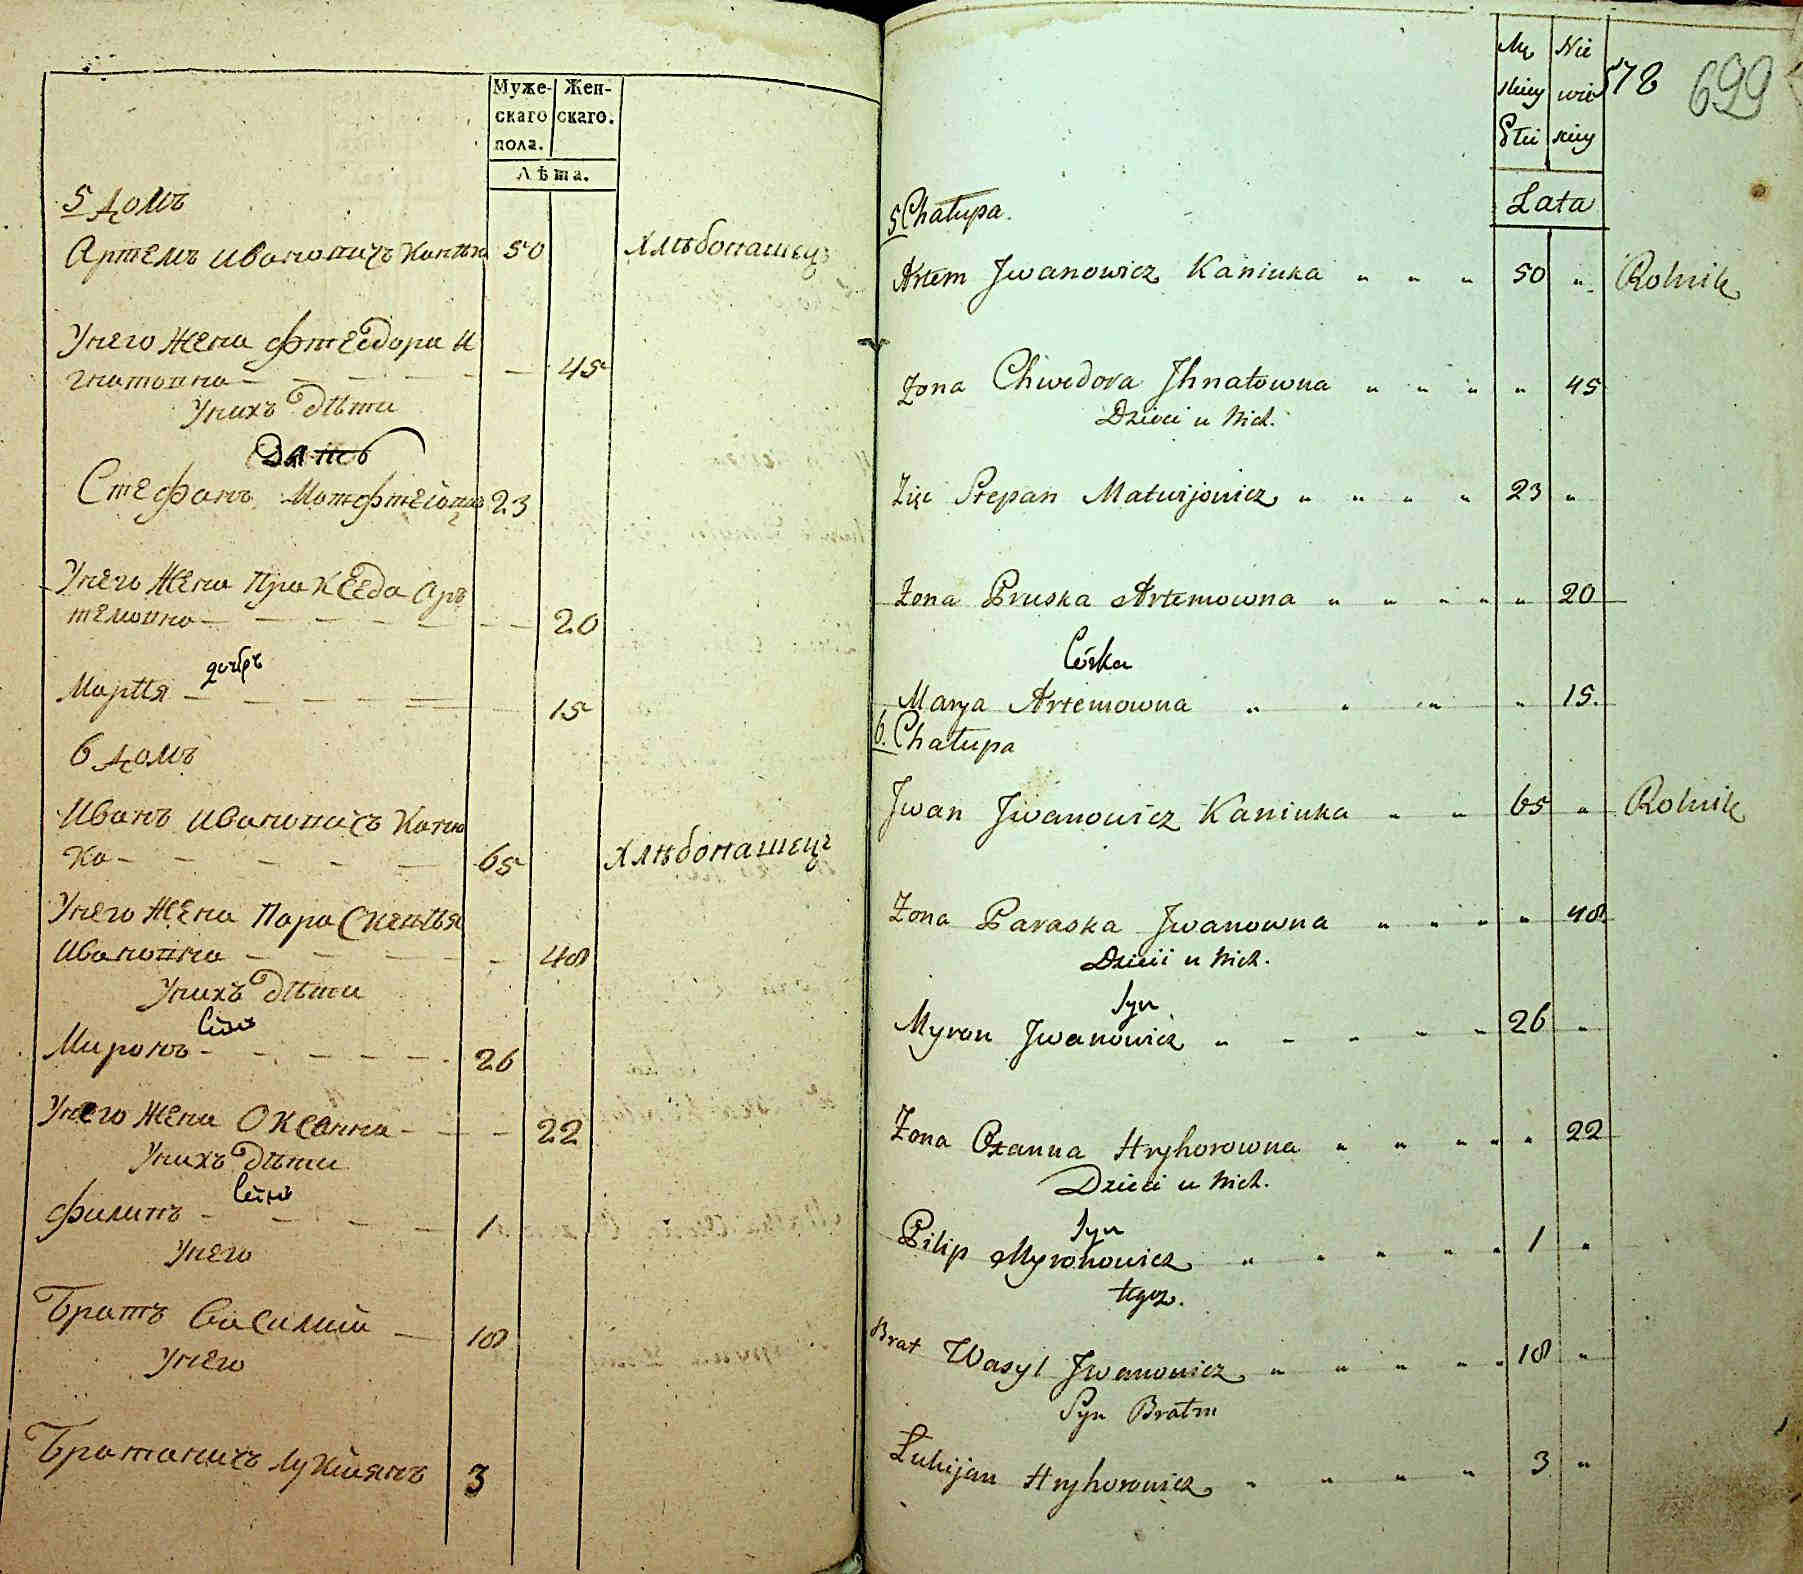 Муже-
скаго
пола.
Жен-
скаго.
Лѣта.
5 домъ
Артемъ Ивановичъ Канюка 50 Хлѣбопашецъ
Унего Жена Фтеодора И
гнатовна — — — — — — 45
Унихъ Дѣти
Зять
Стефанъ Матфтейовичъ 23
Унего Жена Пракседа Ар
темовна — — — — — — 20
дочерь
Марія — — — — — 15
6 домъ
Иванъ Ивановичъ Каню
ка — — — — — 65 Хлѣбопашецъ
Унего Жена Параскевія
Ивановна — — — — — 48
Унихъ Дѣти
Сынъ
Миронъ — — — — — 26
Унего Жена Оксанна — — — 22
Унихъ Дѣти
Сынъ
Филипъ — — — — 1
Унего
Братъ Василий — 18
Унего
Братаничъ Лукиянъ 3
Mę
skiey
Płci
Nie
wie
skiey
578 699
Lata
5 Chałupa.
Artem Jwanowicz Kaniuka " " " 50 " Rolnik
Żona Chwedora Jhnatowna " " " " 45
Dzieci u Nich.
Zięć Stepan Matwijowicz " " " " 23 "
Żona Pruska Artemowna " " " " " 20
Córka
Marya Artemowna " " " " 15.
6. Chałupa
Jwan Jwanowicz Kaniuka " " 65 " Rolnik
Żona Paraska Jwanowna " " " " 48
Dzieci u Nich.
Syn
Myron Jwanowicz " " " " " 26 "
Żona Oxanna Hryhorowna " " " " " 22
Dzieci u Nich.
Syn
Pilip Myronowicz " " " " " 1 "
tegoz.
Brat Wasyl Jwanowicz " " " " " 18 "
Syn Bratni
Łukijan Hryhorowicz " " " " 3 "